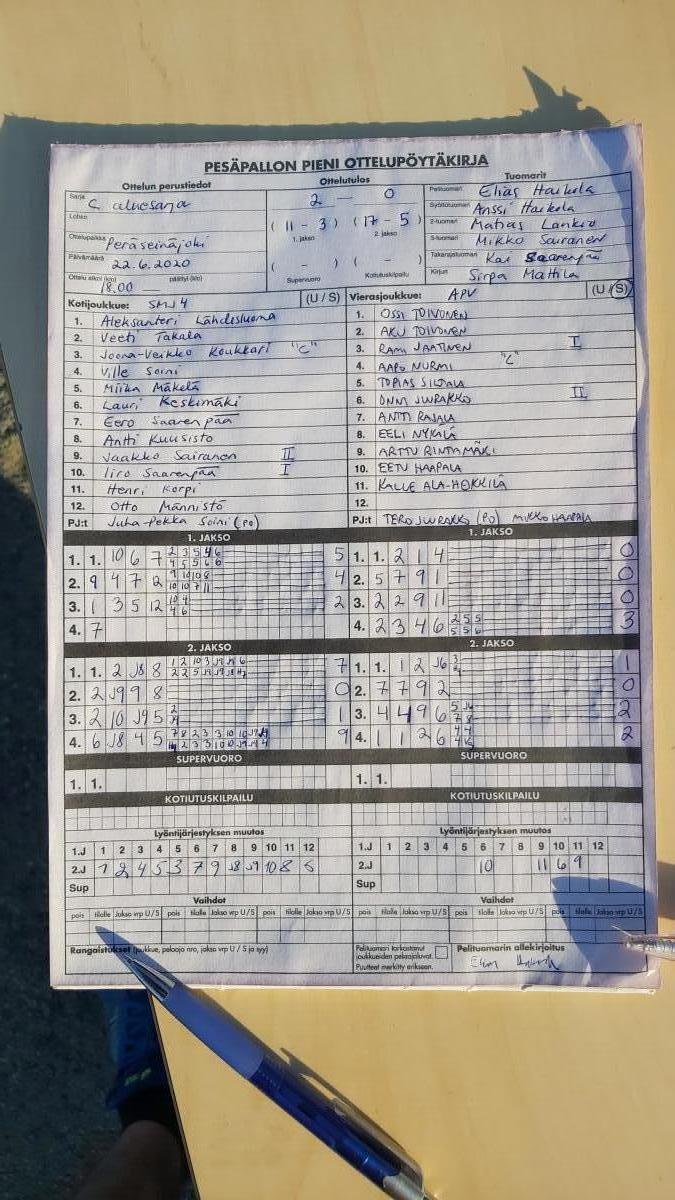 PESÄPALLON PIENI OTTELUPÖYTÄKIRJA
Ottelun perustiedot Ottelutulos Tuomarit
Sarja C aluesarja
Lohko
Ottelupaikka Peräseinäjoki
Päivämäärä 22.6.2020
Ottelu alkoi (klo) 18.00 päättyi (klo)
2 — 0
( 11 - 3 ) ( 17 - 5 )
1. jakso 2. jakso
( ) ( - )
Supervuoro Kotiutuskilpailu
Pelituomari Elias Harkola
Syöttötuomari Anssi Harkola
2-tuomari Matias Lankio
3-tuomari Mikko Sairanen
Takarajatuomari Kai Saarenpää
Kirjuri Sirpa Mattila
Kotijoukkue: SMJ 4 (U / S) Vierasjoukkue: APV (U / S)
1. Aleksanteri Lähdesluoma
2. Veeti Takala
3. Joona-Veikko Koukkari "C"
4. Ville Soini
5. Miika Mäkelä
6. Lauri Keskimäki
7. Eero Saarenpää
8. Antti Kuusisto
9. Jaakko Sairanen II
10. Iiro Saarenpää I
11. Henri Korpi
12. Otto Männistö
PJ:t Juha-Pekka Soini (PO)
1. OSSI TOIVONEN
2. AKU TOIVONEN
3. RAMI JAATINEN I
4. AAPO NURMI "C"
5. TOPIAS SILTALA
6. ONNI JUURAKKO II
7. ANTTI RAJALA
8. EELI NYKÄLÄ
9. ARTTU RINTAMÄKI
10. EETU HAAPALA
11. KALLE ALA-HEKKILÄ
12.
PJ:t TERO JUURAKKO (PO) MIKKO HAAPALA
1. JAKSO 1. JAKSO
1. 1. 10 6 7 5
2. 9 4 7 2 4
3. 1 3 5 12 2
4. 7
1. 1. 2 1 4 0
2. 5 7 9 1 0
3. 2 2 9 11 0
4. 2 3 4 6 2 5 5 3
5 5 6
2. JAKSO 2. JAKSO
1. 1. 2 J8 8 7
2. 2 J9 9 8 0
3. 2 10 J9 5 1
4. 6 J8 4 5 9
1. 1. 1 2 J6 1
2. 7 7 9 2 0
3. 4 4 9 6 2
4. 1 1 2 6 2
SUPERVUORO SUPERVUORO
1. 1. 1. 1.
KOTIUTUSKILPAILU KOTIUTUSKILPAILU
Lyöntijärjestyksen muutos Lyöntijärjestyksen muutos
1.J 1 2 3 4 5 6 7 8 9 10 11 12
2.J 1 2 4 5 3 7 9 J8 J9 10 8 6
Sup
1.J 1 2 3 4 5 6 7 8 9 10 11 12
2.J 10 11 6 9
Sup
Vaihdot Vaihdot
pois tilalle Jakso vrp U/S pois tilalle Jakso vrp U/S pois tilalle Jakso vrp U/S
pois tilalle Jakso vrp U/S pois tilalle Jakso vrp U/S pois tilalle Jakso vrp U/S
Rangaistukset (joukkue, pelaaja nro, jakso vrp U / S ja syy)
Pelituomari tarkastanut
joukkueiden pelaajaluvat.
Puutteet merkitty erikseen.
Pelituomarin allekirjoitus